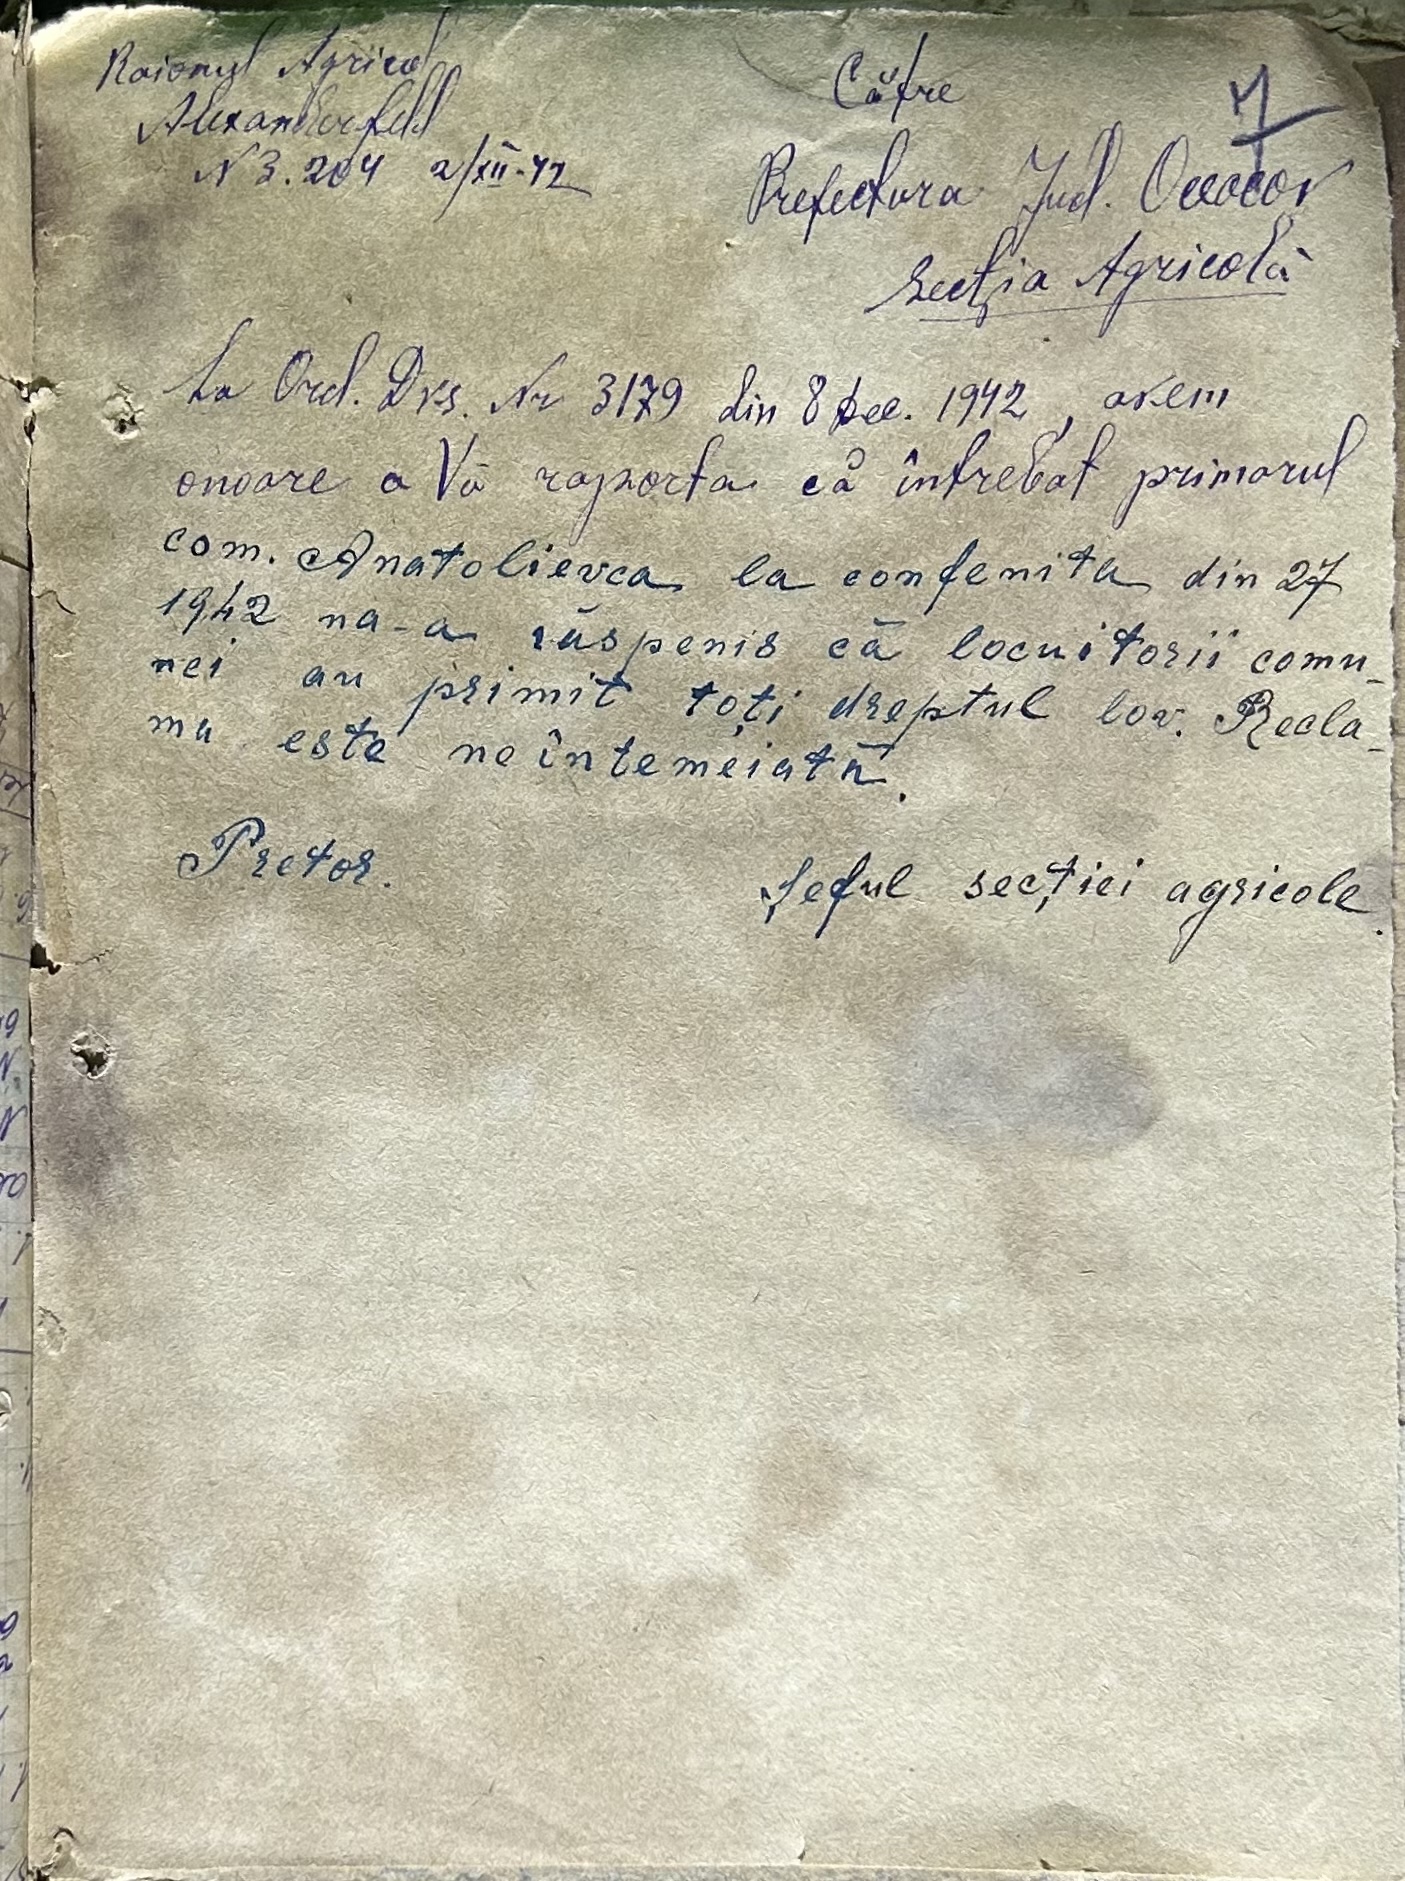 Raionul Agricol
Alexanderfeld
N 3.204 2/XII-42
Către
7
Prefectura Jud. Oceacov
Secția Agricolă
La Ord. Dvs. Nr 3179 din 8 Dec. 1942, avem
onoare a Vă raporta că întrebat primarul
com. Anatolievca la confenita din 27
1942 na-a răspenis că locuitorii comu-
nei au primit toți dreptul lov. Recla-
ma este neîntemeiată.
Pretor.
Șeful secției agricole.